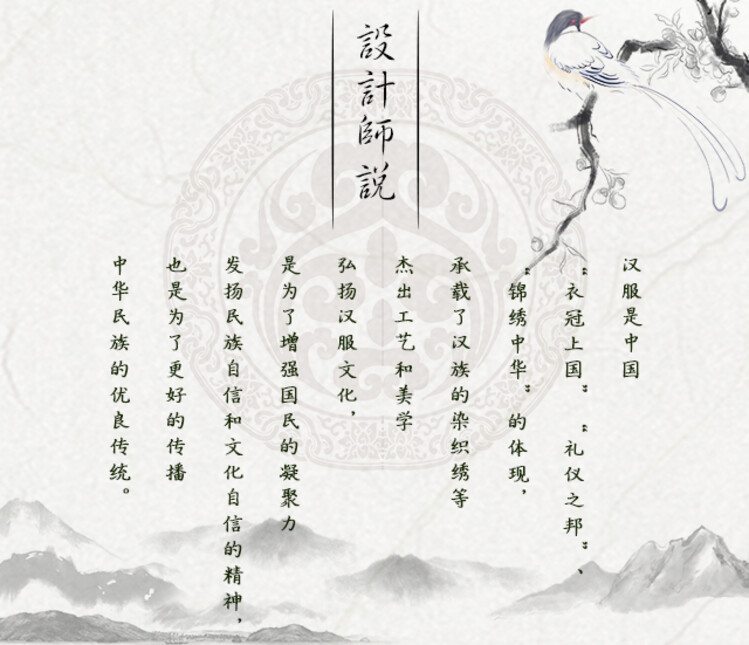 設計師說
汉服是中国
“衣冠上国”、“礼仪之邦”、
“锦绣中华”的体现，
承载了汉族的染织绣等
杰出工艺和美学
弘扬汉服文化，
是为了增强国民的凝聚力
发扬民族自信和文化自信的精神，
也是为了更好的传播
中华民族的优良传统。